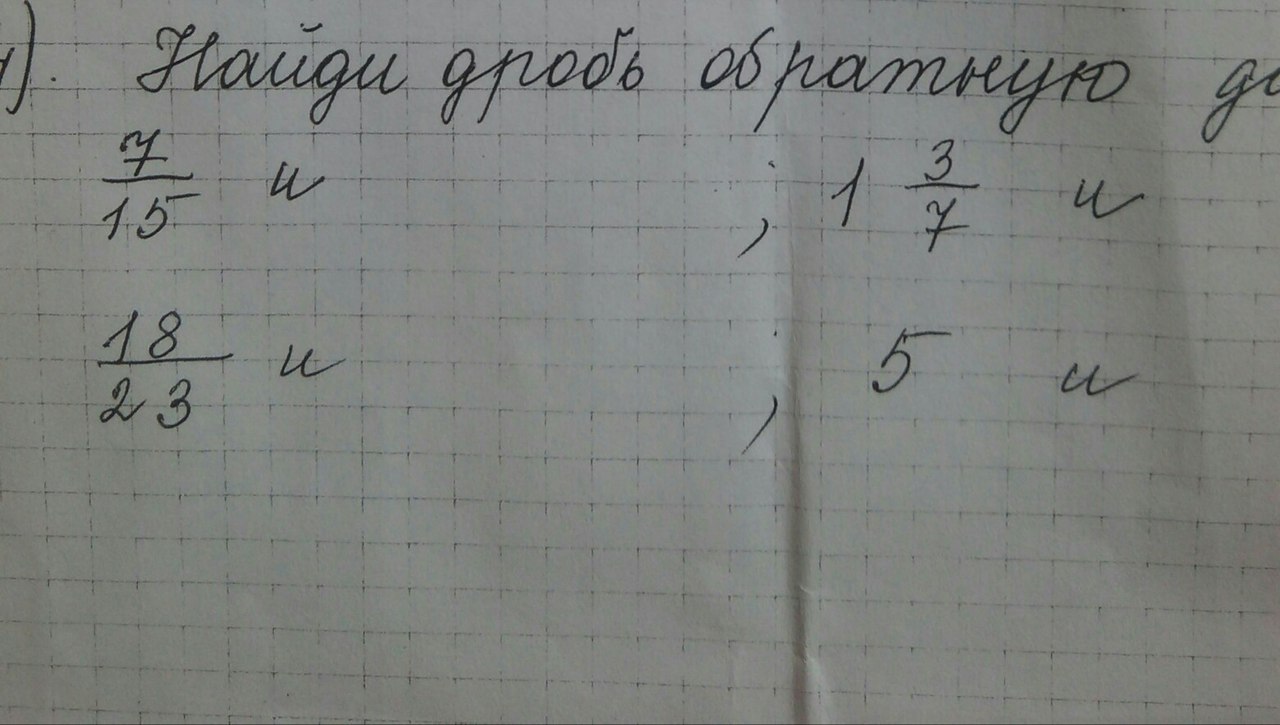 ). Найди дробь обратную
7/15 и ; 1 3/7 и
18/23 и ; 5 и